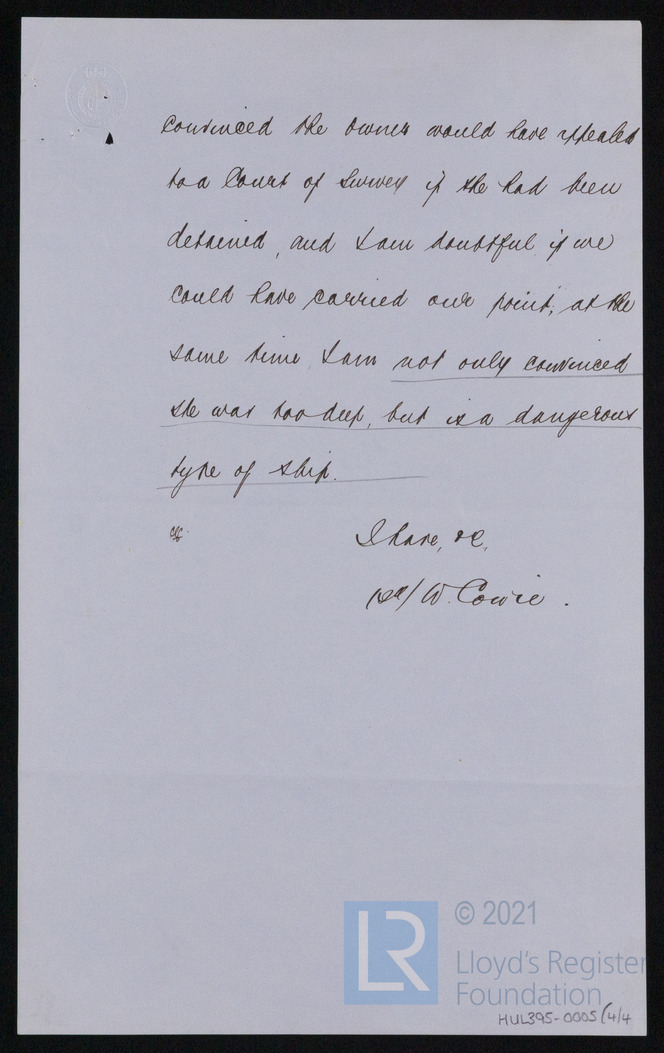 convinced the owners would have appealed
to a Court of Survey if she had been
detained, and I am doubtful if we
could have carried our point; at the
same time I am not only convinced
she was too deep, but is a dangerous
type of ship.
I have, &c,
W. Cowie.
© 2021
LR
Lloyd's Register
Foundation
HUL395-0005(4/4